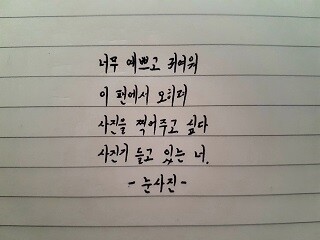 너무 예쁘고 귀여워
이 편에서 오히려
사진을 찍어주고 싶다
사진기 들고 있는 너.
- 눈사진 -